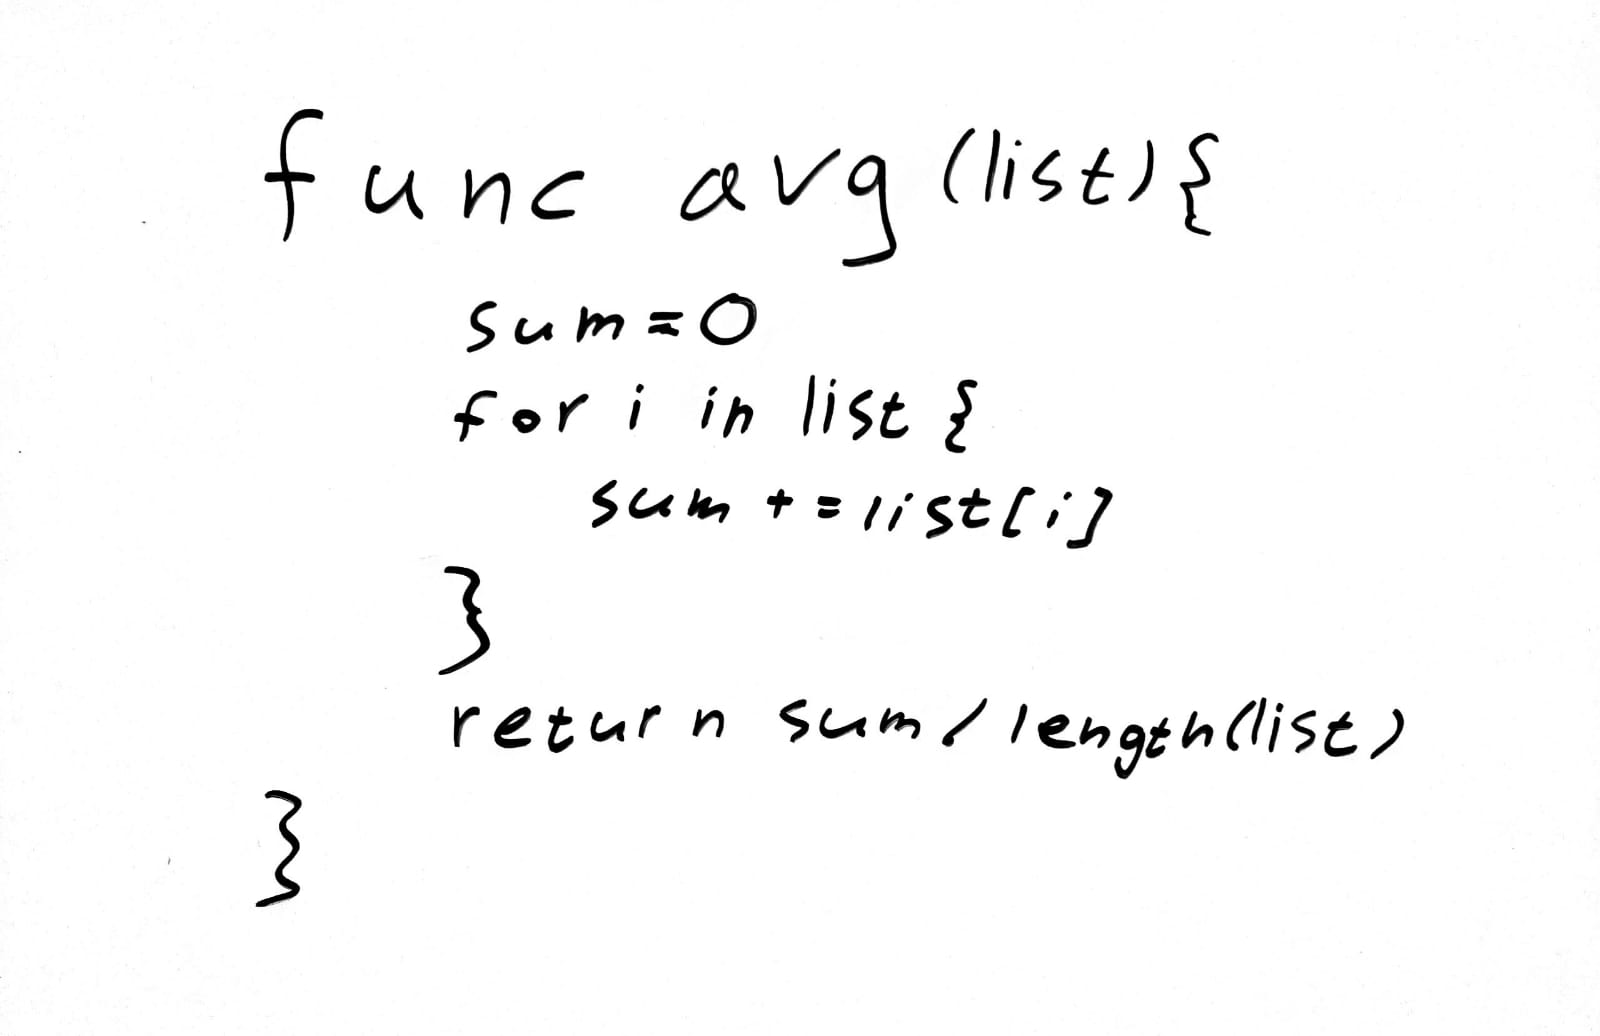 func avg (list) {
sum = 0
for i in list {
sum += list[i]
}
return sum / length(list)
}